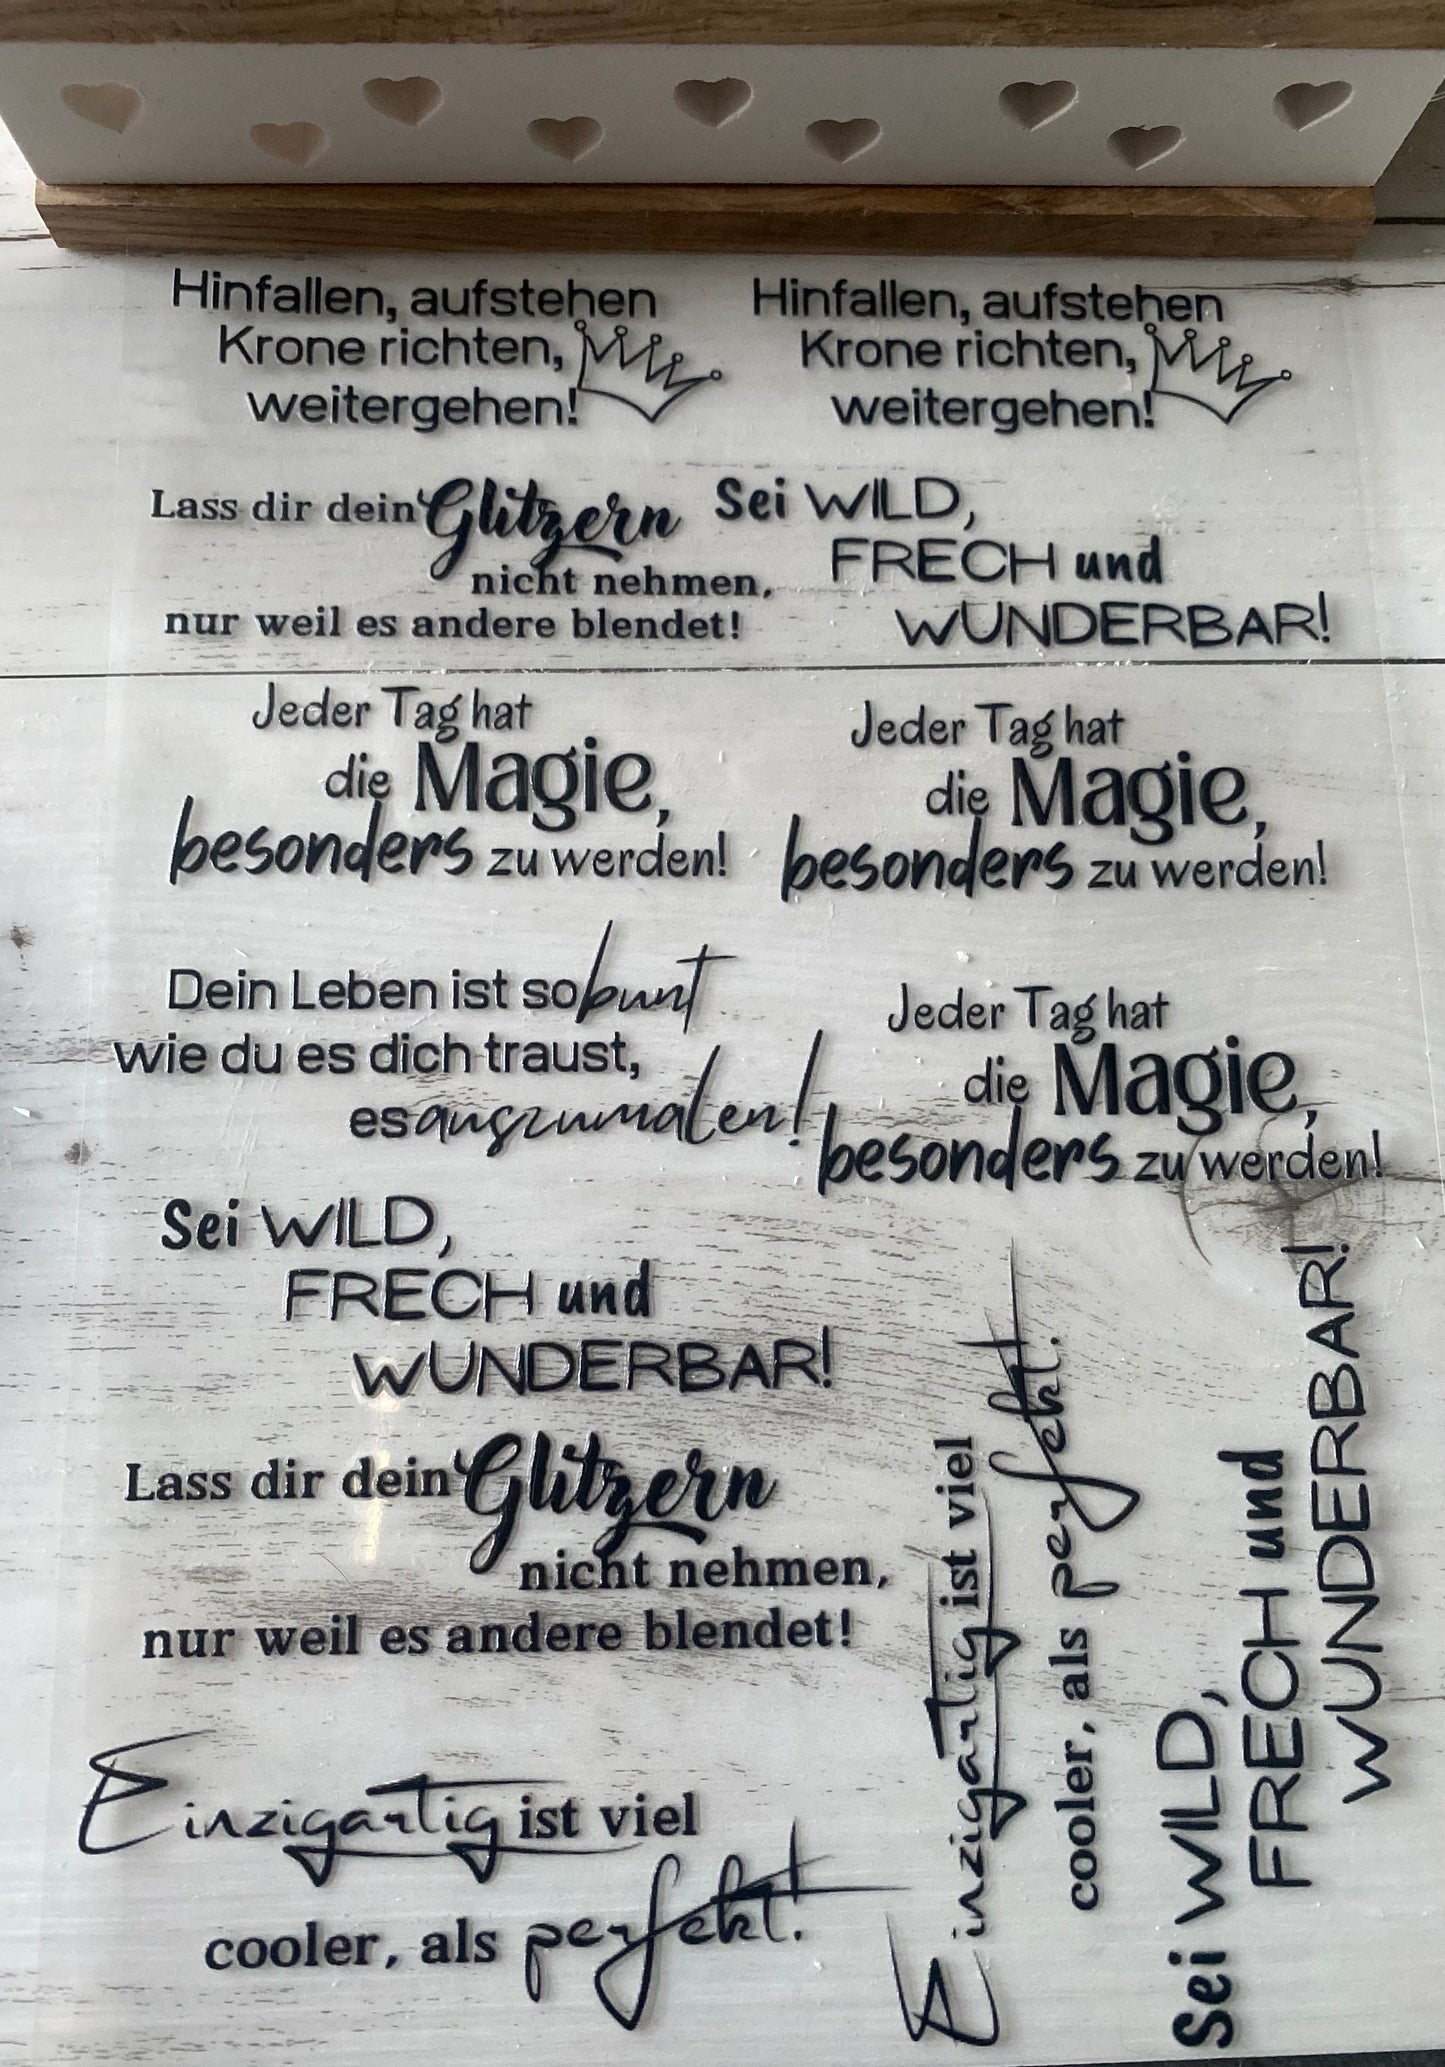 Hinfallen, aufstehen
Krone richten,
weitergehen!
Hinfallen, aufstehen
Krone richten,
weitergehen!
Lass dir dein Glitzern
nicht nehmen,
nur weil es andere blendet!
Sei WILD,
FRECH und
WUNDERBAR!
Jeder Tag hat
die Magie,
besonders zu werden!
Jeder Tag hat
die Magie,
besonders zu werden!
Dein Leben ist so bunt
wie du es dich traust,
es auszumalen!
Jeder Tag hat
die Magie,
besonders zu werden!
Sei WILD,
FRECH und
WUNDERBAR!
Lass dir dein Glitzern
nicht nehmen,
nur weil es andere blendet!
Einzigartig ist viel
cooler, als perfekt!
Einzigartig ist viel
cooler, als perfekt!
Sei WILD,
FRECH und
WUNDERBAR!